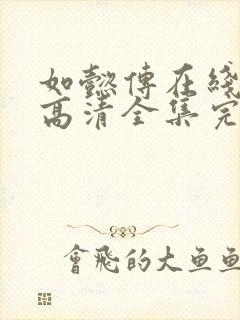 如懿傳在綫
高清全集完
會飛的大魚魚